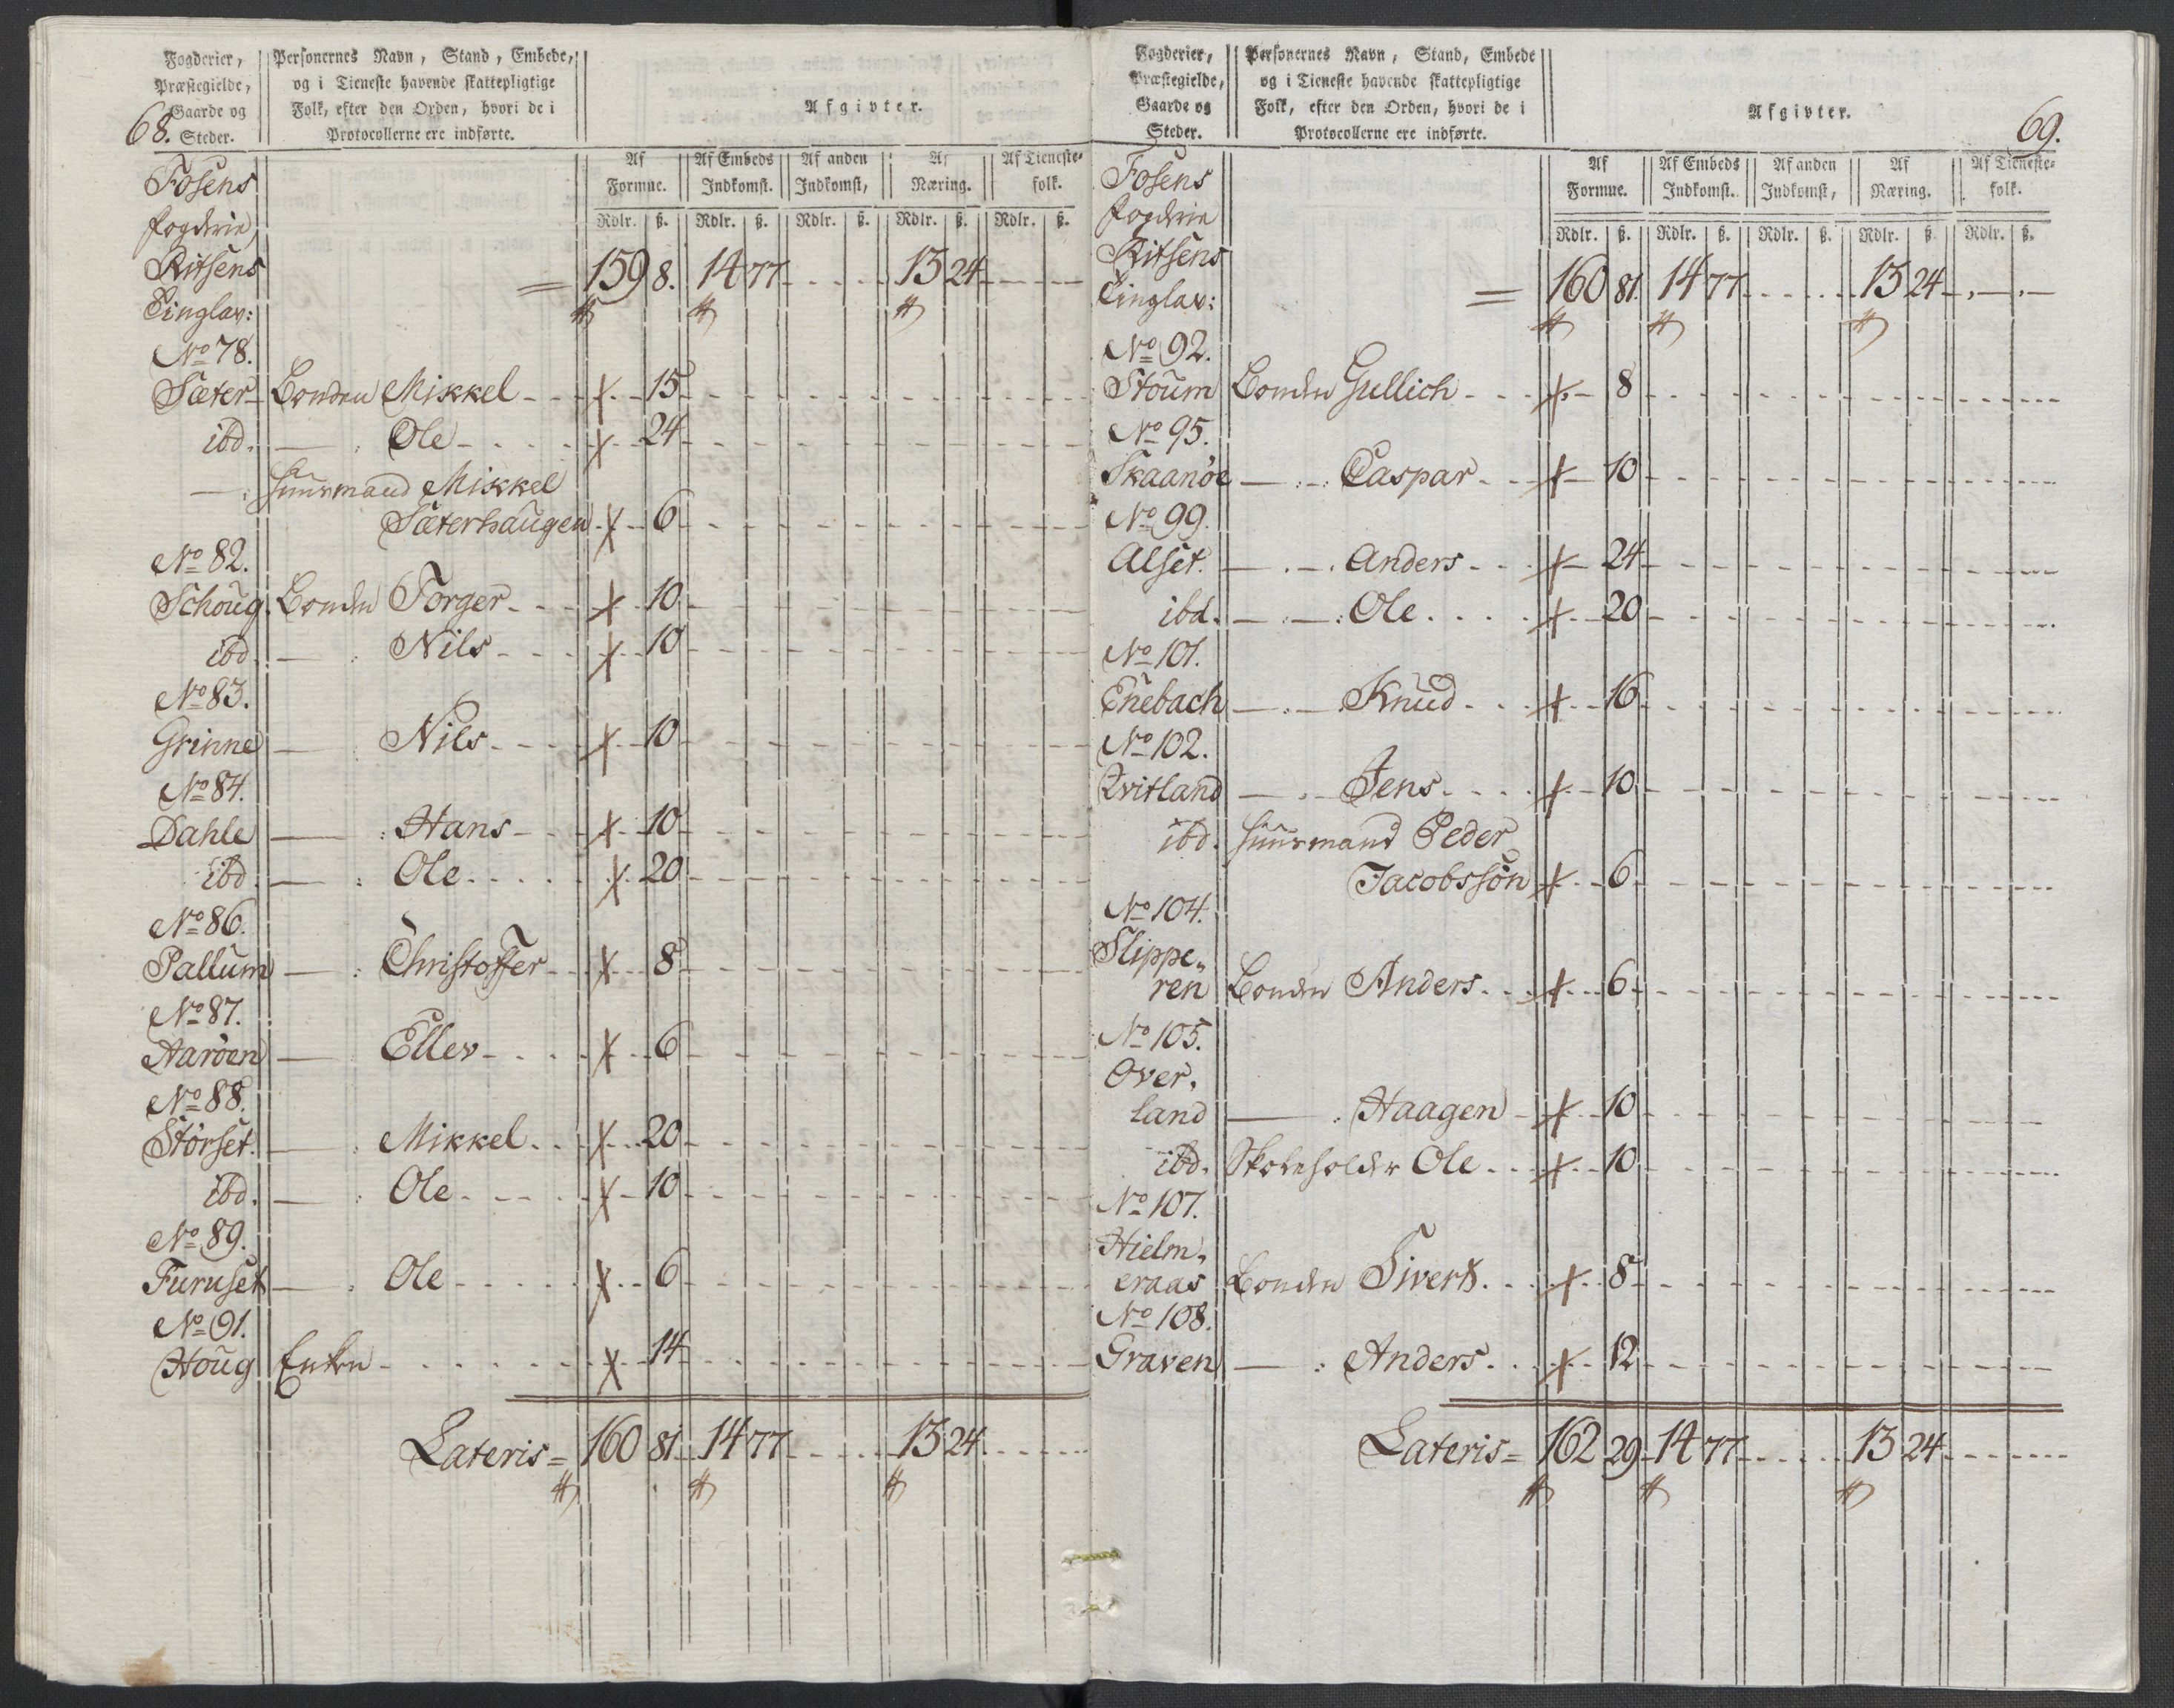 68.
Fogderier, Præstegielde, Gaarde og Steder.
Personernes Navn, Stand, Embede, og i Tieneste havende skattepligtige Folk, efter den Orden, hvori de i Protocollerne ere indførte.
Afgivter.
Af Formue. Af Embeds Indkomst. Af anden Indkomst, Af Næring. Af Tieneste- folk.
Rdlr. ß. Rdlr. ß. Rdlr. ß. Rdlr. ß. Rdlr. ß.
Fosens
fogderie
Ritsens = 159 8. 14 77 13 24
Tinglav:
No 78.
Sæter Bonden Mikkel 15
ibd. — : Ole 24
— : Huusmand Mikkel
Sæterhaugen 6
No 82.
Schoug. Bonden Torger 10
ibd. — : Nils 10
No 83.
Grinne — Nils 10
No 84.
Dahle — : Hans 10
ibd. — : Ole 20
No 86.
Pallum — : Christoffer 8
No 87.
Aarøen — Ellev 6
No 88.
Størset. — : Mikkel 20
ibd. — : Ole 10
No 89.
Furuset — : Ole 6
No 91.
Houg Enken 14
Lateris = 160 81 14 77 13 24
69.
Fogderier, Præstegielde, Gaarde og Steder.
Personernes Navn, Stand, Embede og i Tieneste havende skattepligtige Folk, efter den Orden, hvori de i Protocollerne ere indførte.
Afgivter.
Af Formue. Af Embeds Indkomst. Af anden Indkomst, Af Næring. Af Tieneste- folk.
Rdlr. ß. Rdlr. ß. Rdlr. ß. Rdlr. ß. Rdlr. ß.
Fosens
fogderie
Ritsens
Tinglav: = 160 81. 14 77 13 24
No 92.
Stoum Bonden Gullich 8
No 95.
Skaanøe — Caspar 10
No 99.
Alset. — Anders 24
ibd. — : Ole 20
No 101.
Enebach — Knud 16
No 102.
Qvitland — Jens 10
ibd. Huusmand Peder
Jacobssøn 6
No 104.
Slippe-
ren Bonden Anders 6
No 105.
Over-
land — : Haagen 10
ibd. Skoleholder Ole 10
No 107.
Hielm-
eraas Bonden Sivert 8
No 108.
Graven — : Anders 12
Lateris = 162 29 14 77 13 24